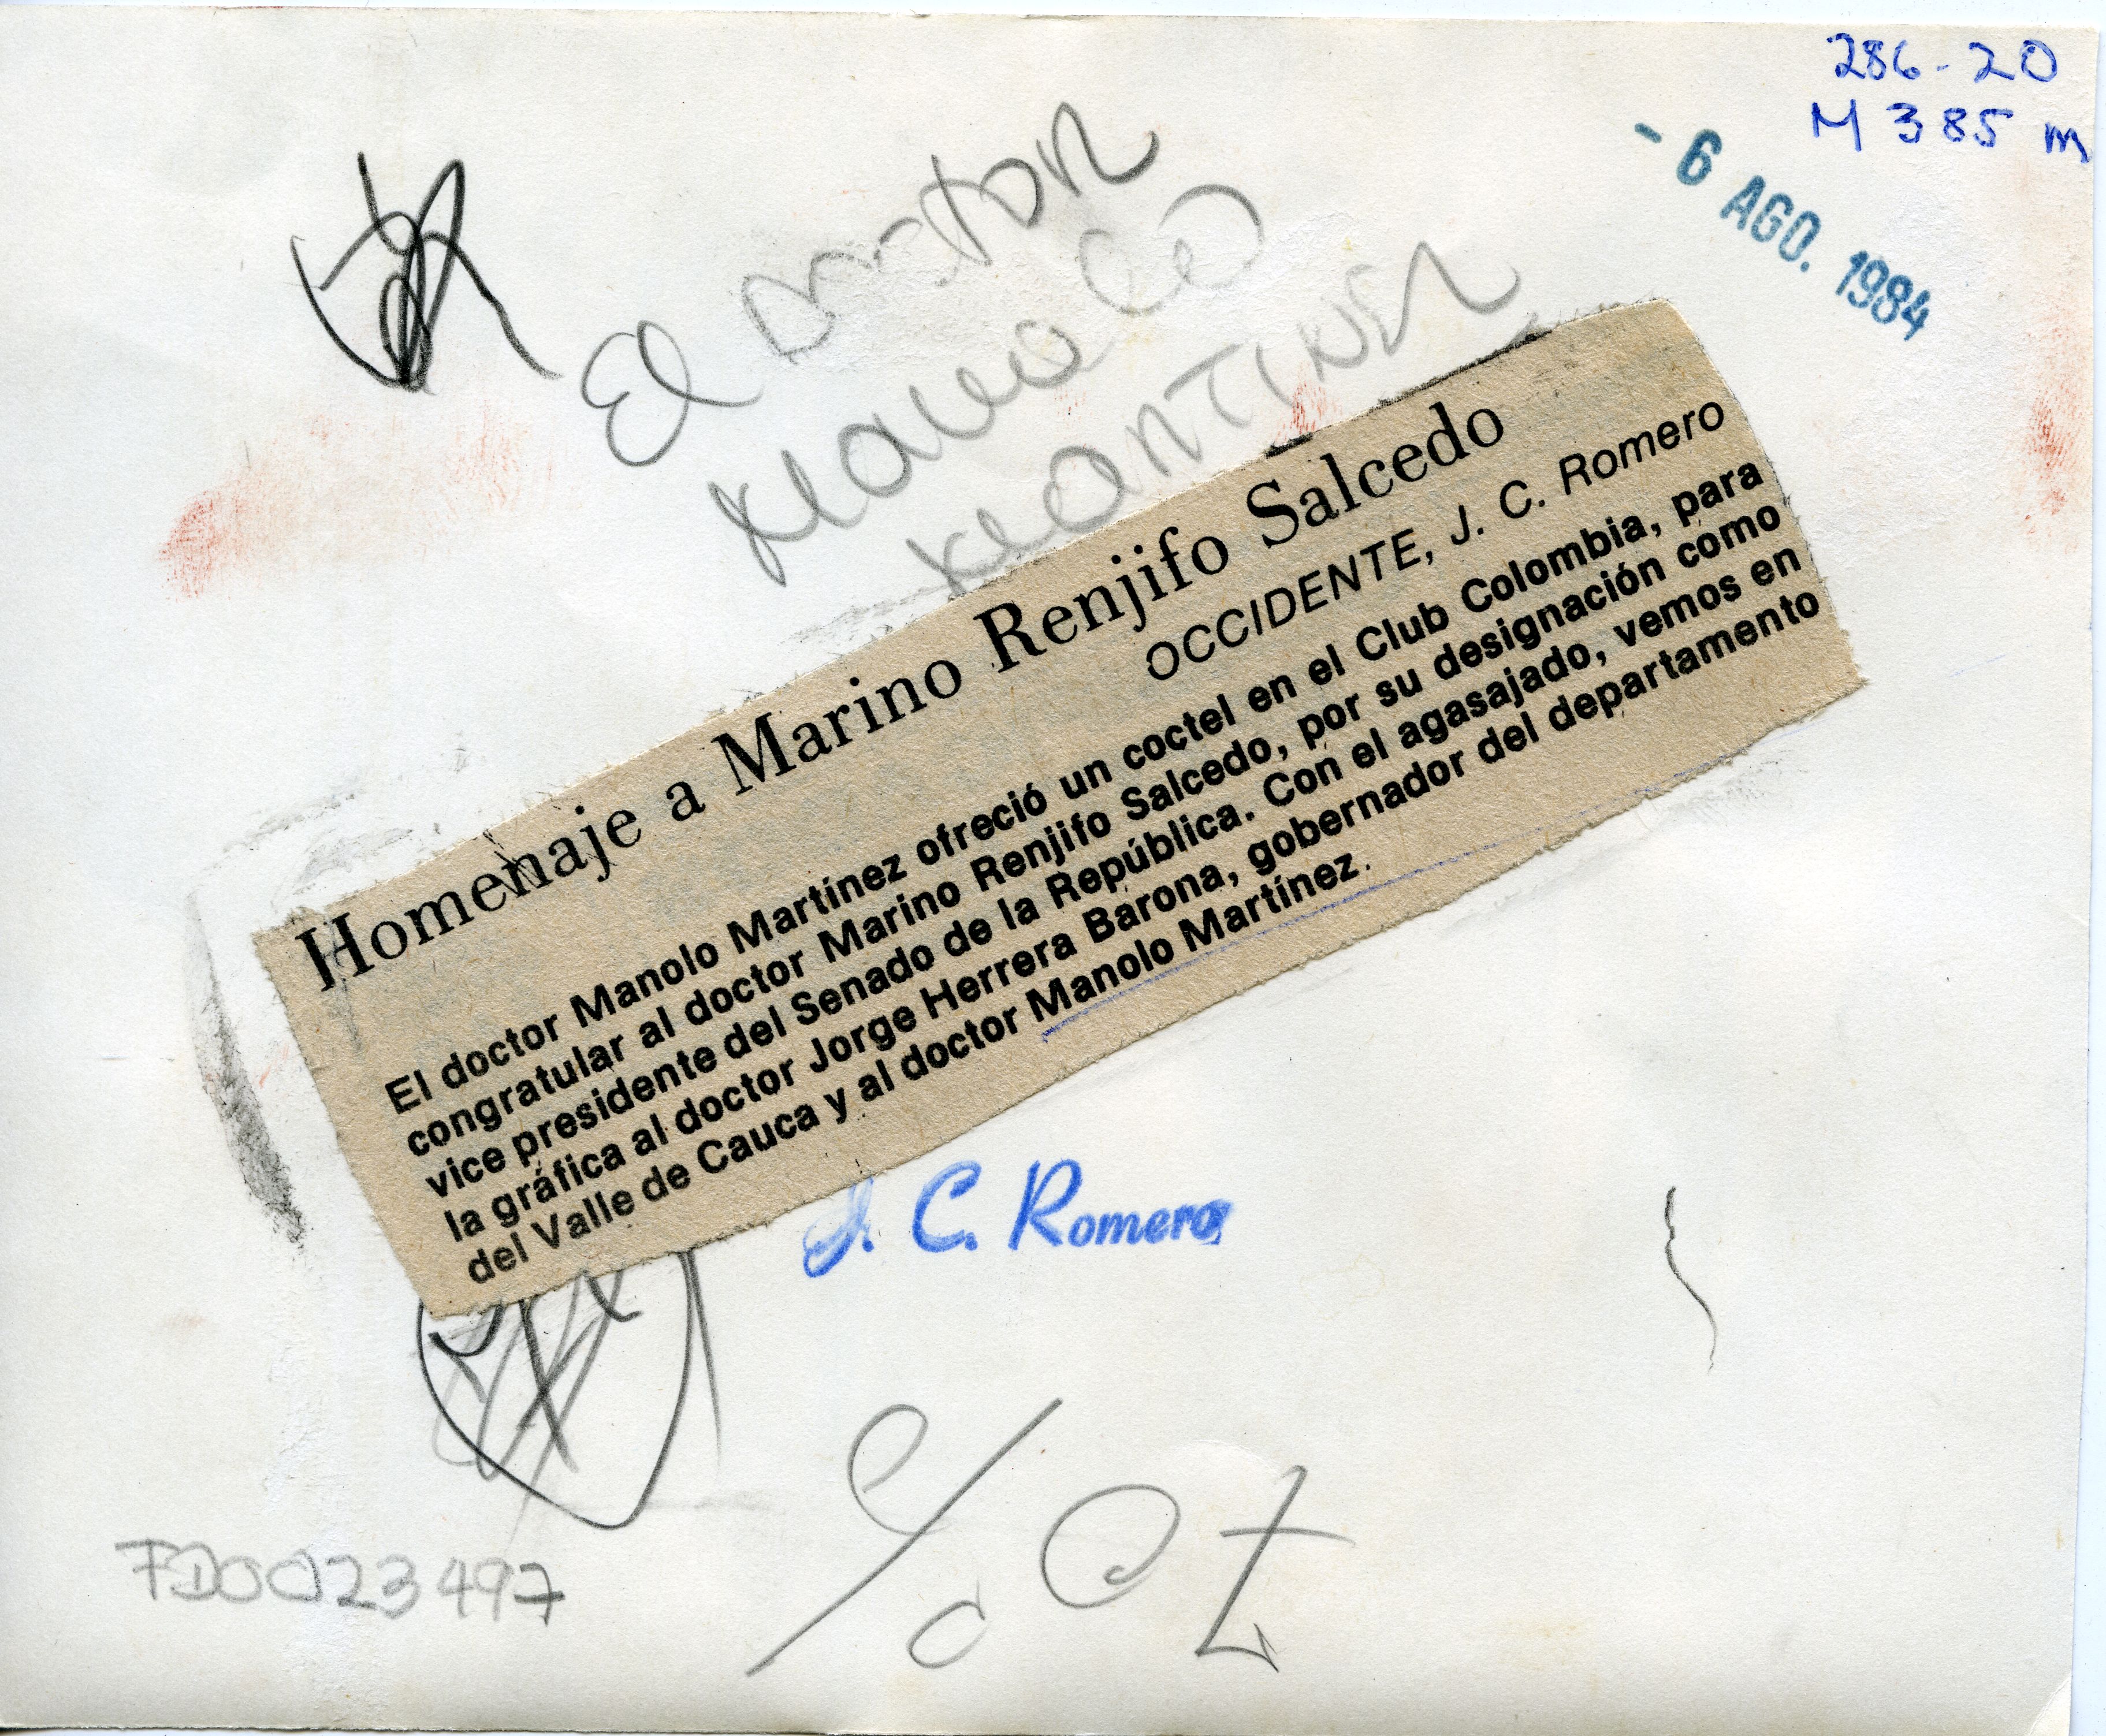 286-20
M 385 m
- 6 AGO. 1984
El doctor
Manolo
Martinez
Homenaje a Marino Renjifo Salcedo
OCCIDENTE, J. C. Romero
El doctor Manolo Martínez ofreció un coctel en el Club Colombia, para
congratular al doctor Marino Renjifo Salcedo, por su designación como
vice presidente del Senado de la República. Con el agasajado, vemos en
la gráfica al doctor Jorge Herrera Barona, gobernador del departamento
del Valle de Cauca y al doctor Manolo Martínez.
J. C. Romero
FD0023497